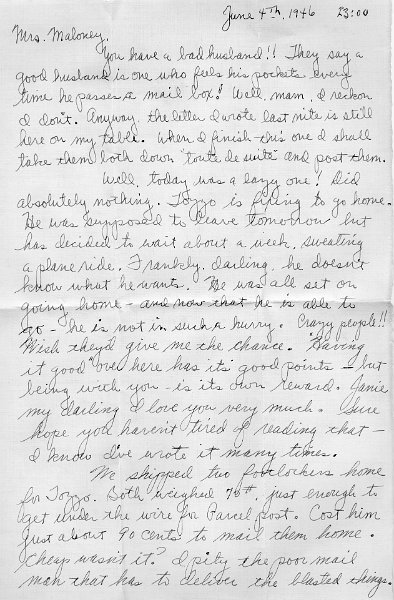 June 4th, 1946 23:00
Mrs. Maloney,
You have a bad husband!! They say a
good husband is one who feels his pockets every
time he passes a mail box! Well, mam, I reckon
I don't. Anyway, the letter I wrote last nite is still
here on my table. When I finish this one I shall
take them both down "toute de suite" and post them.
Well, today was a lazy one! Did
absolutely nothing. Tozzo is fixing to go home.
He was supposed to leave tomorrow but
has decided to wait about a week, sweating
a plane ride. Frankly, darling, he doesn't
know what he wants. He was all set on
going home - and now that he is able to
go - he is not in such a hurry. Crazy people!!
Wish they'd give me the chance. "Having
it good" over here has it's good points - but
being with you - is its own reward. Janie
my darling I love you very much. Sure
hope you haven't tired of reading that -
I know I've wrote it many times.
We shipped two footlockers home
for Tozzo. Both weighed 70#, just enough to
get under the wire for Parcel post. Cost him
just about 90 cents to mail them home.
Cheap wasn't it? I pity the poor mail
man that has to deliver the blasted things.